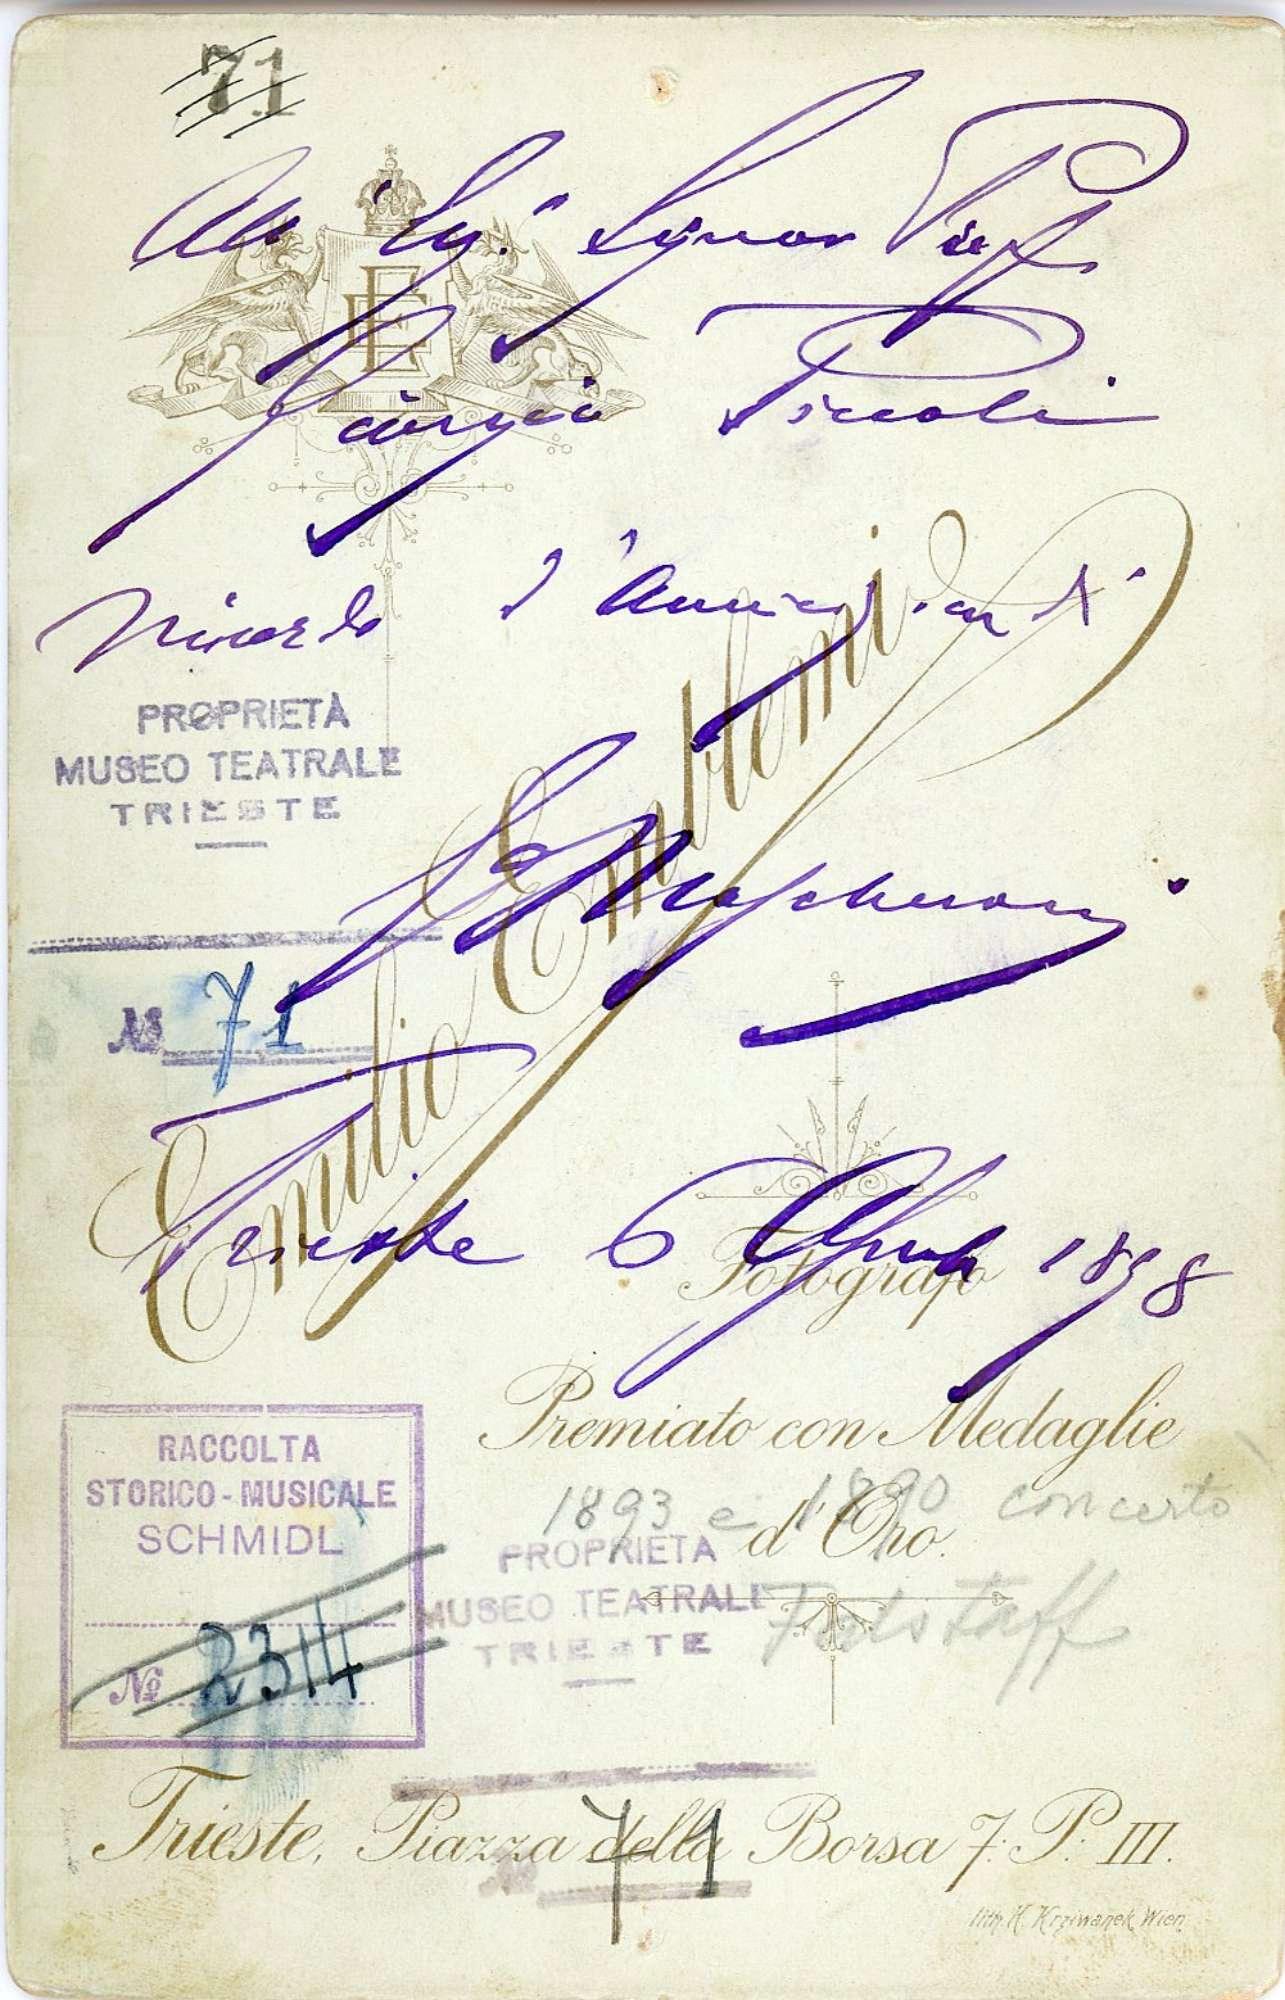 71
All' Eg. Signor Prof
Giorgio Piccoli
Ricordo d'
EE
PROPRIETÀ
MUSEO TEATRALE
TRIESTE
E Mascheroni
№ 71
Emilio Emblemi
Trieste 6 Aprile 1898
Fotografo
Premiato con Medaglie
d'Oro.
1893 e 1890 concerto
Falstaff
RACCOLTA
STORICO-MUSICALE
SCHMIDL
№ 2314
PROPRIETÀ
MUSEO TEATRALE
TRIESTE
71
Trieste, Piazza della Borsa 7. P. III.
Lith. K. Krziwanek, Wien